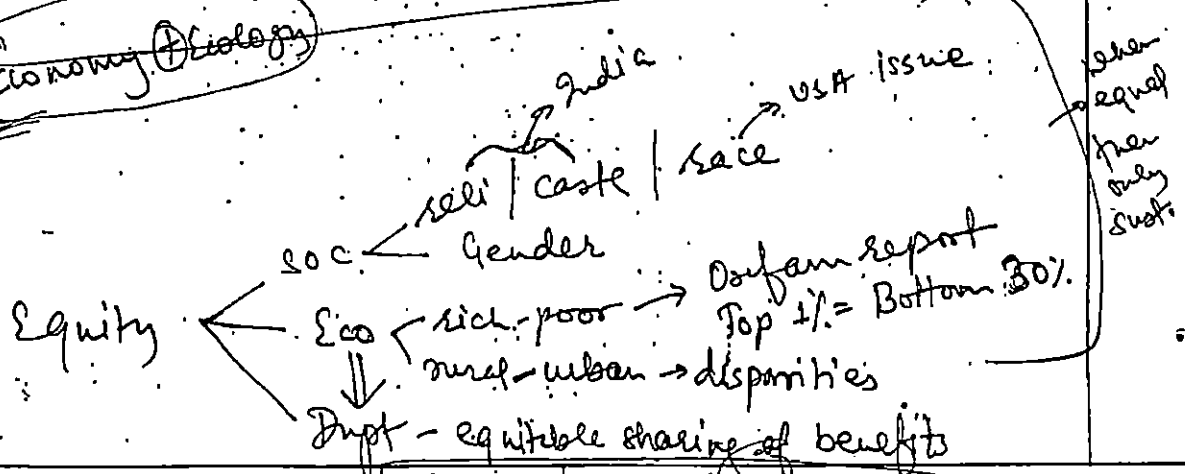 Economy + Ecology
India
USA issue
reli | caste | race
SOC. Gender
Equity
Eco rich-poor → Oxfam report
Top 1% = Bottom 30%
rural-urban → disparities
Dvpt - equitable sharing of benefits
when
equal
then
only
sust.